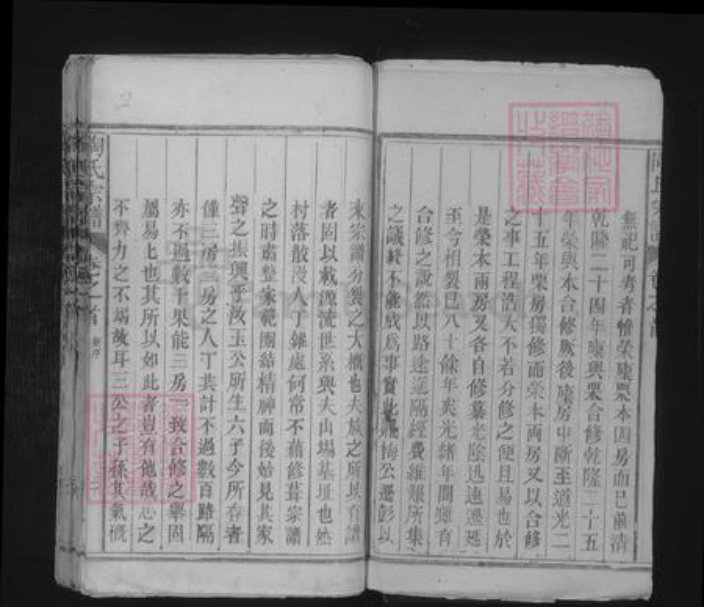 無祀可考者惟榮康㮚本四房而已前清
乾隆二十四年康與㮚合修乾隆二十五
年榮與本合修厥後康房中斷至道光二
十五年㮚房獨修而榮本兩房又以合修
之事工程浩大不若分修之便且易也於
是榮本兩房又各自修纂光陰迅速遷延
至今相裂已八十餘年矣光緒年間雖有
合修之說蓋以路途遥隔經費維艱所集
之議終不能成為事實此 悔公遷彭以
來宗譜分裂之大概也夫族之所以有譜
者固以載源流世系與夫山場基址也然
村落散漫人丁雜處何常不藉修葺宗譜
之時肅整家範團結精神而後始見其家
聲之振興乎汝玉公所生六子今所存者
僅三房三房之人丁共計不過數百路隔
亦不過數十果能三房一致合修之舉固
屬易易也其所以如此者豈有他哉志之
不齊力之不竭故耳三公之子孫其氣概
陶氏宗譜
卷之首